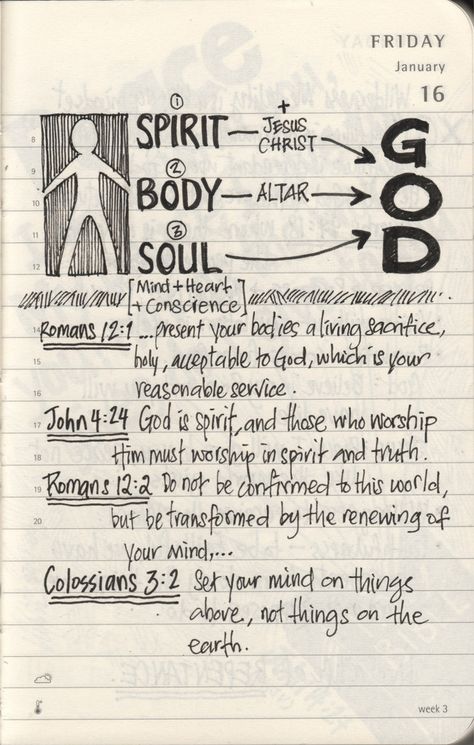 FRIDAY
January
16
①
8 SPIRIT — JESUS CHRIST → G
9
②
10 BODY — ALTAR → O
11
③
12 SOUL → D
[Mind + Heart
+ Conscience]
14 Romans 12:1 ...present your bodies a living sacrifice,
15 holy, acceptable to God, which is your
16 reasonable service.
17 John 4:24 God is spirit, and those who worship
18 Him must worship in spirit and truth.
19 Romans 12:2 Do not be confirmed to this world,
20 but be transformed by the renewing of
your mind,...
Colossians 3:2 Set your mind on things
above, not things on the
earth.
week 3